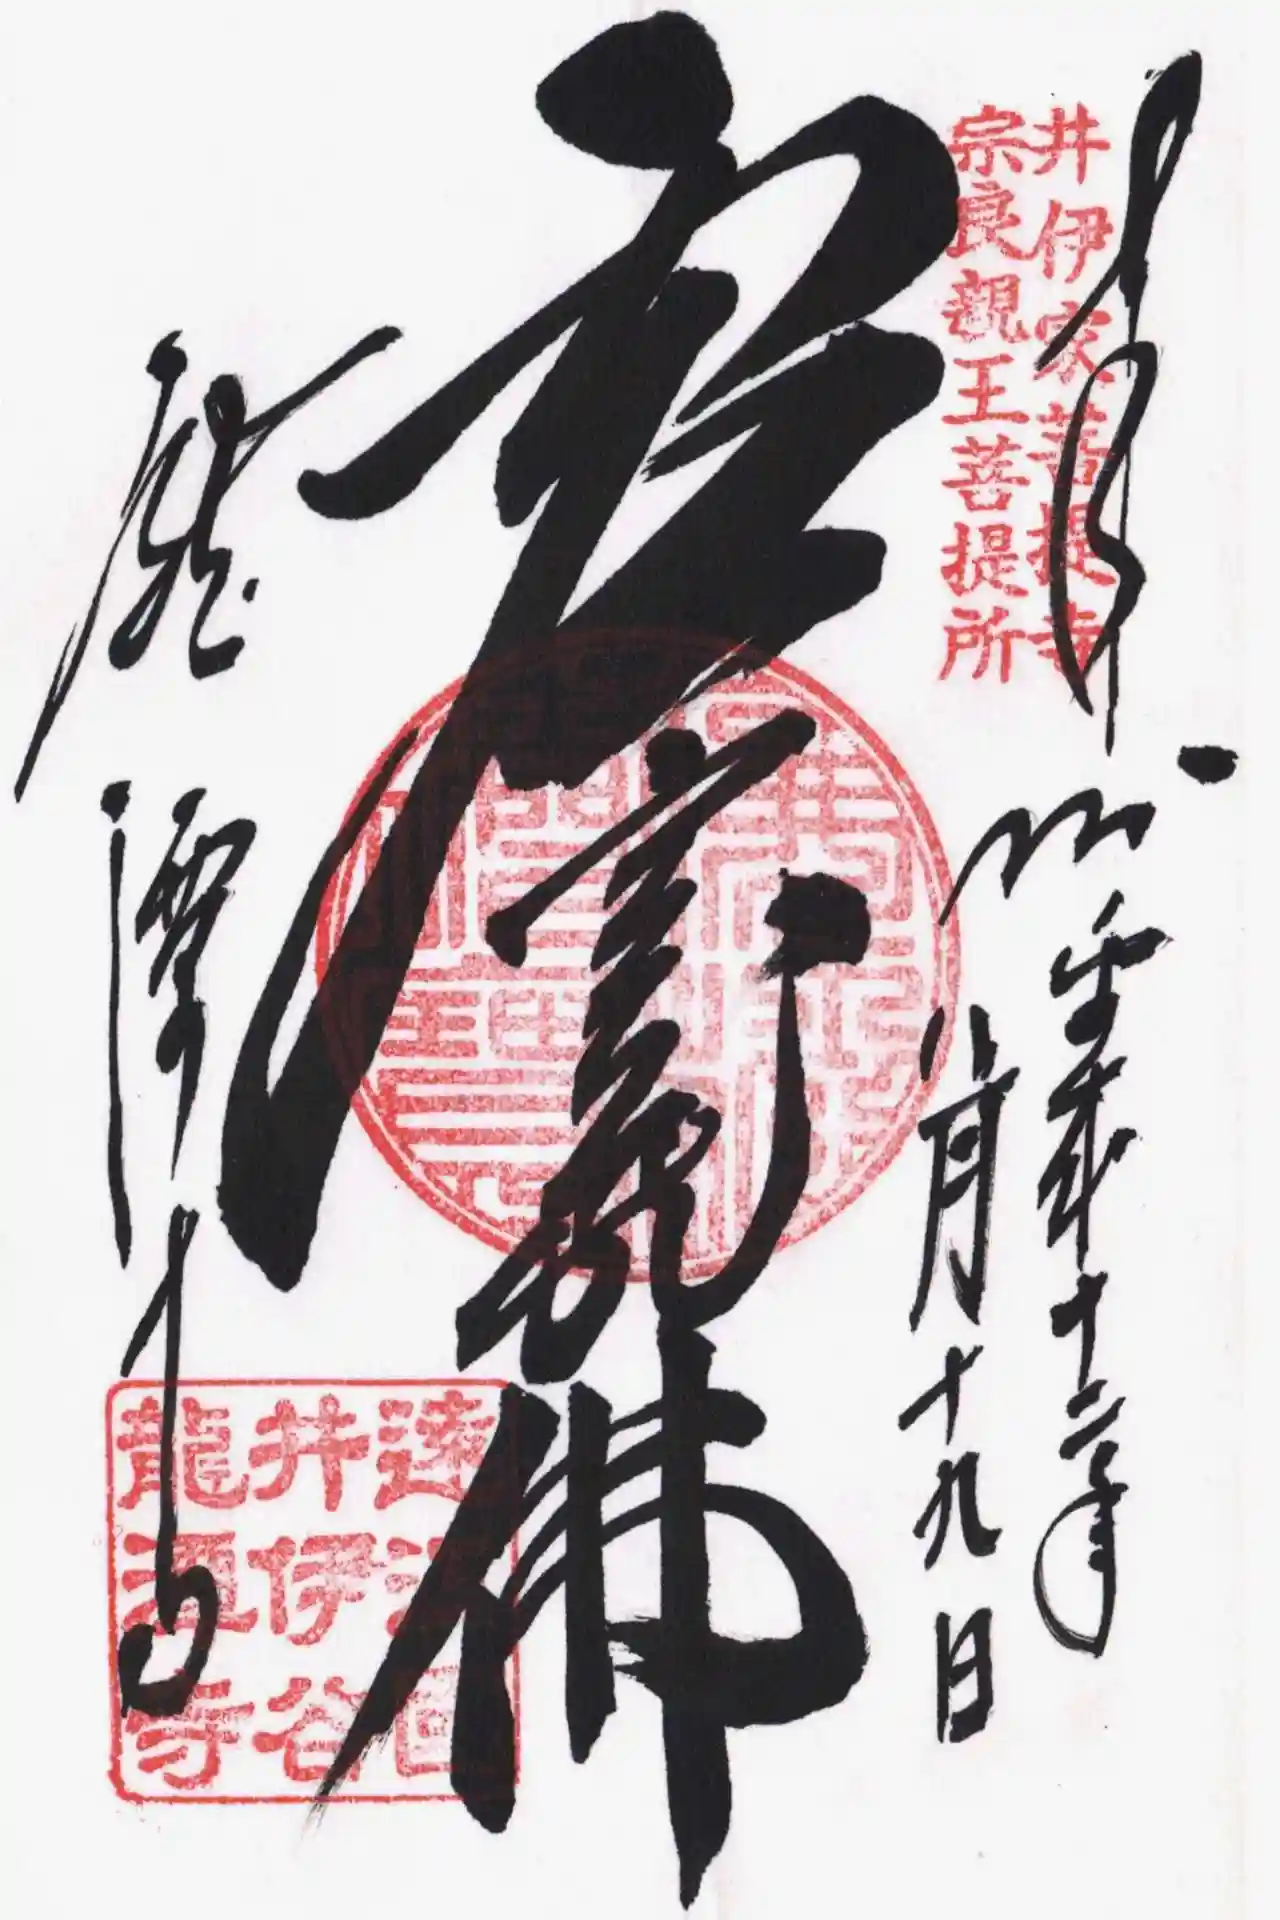 井伊家菩提寺
宗良親王菩提所
奉拝
十二年
月十九日
虚空蔵佛
龍潭寺
遠江國
井伊谷
龍潭寺